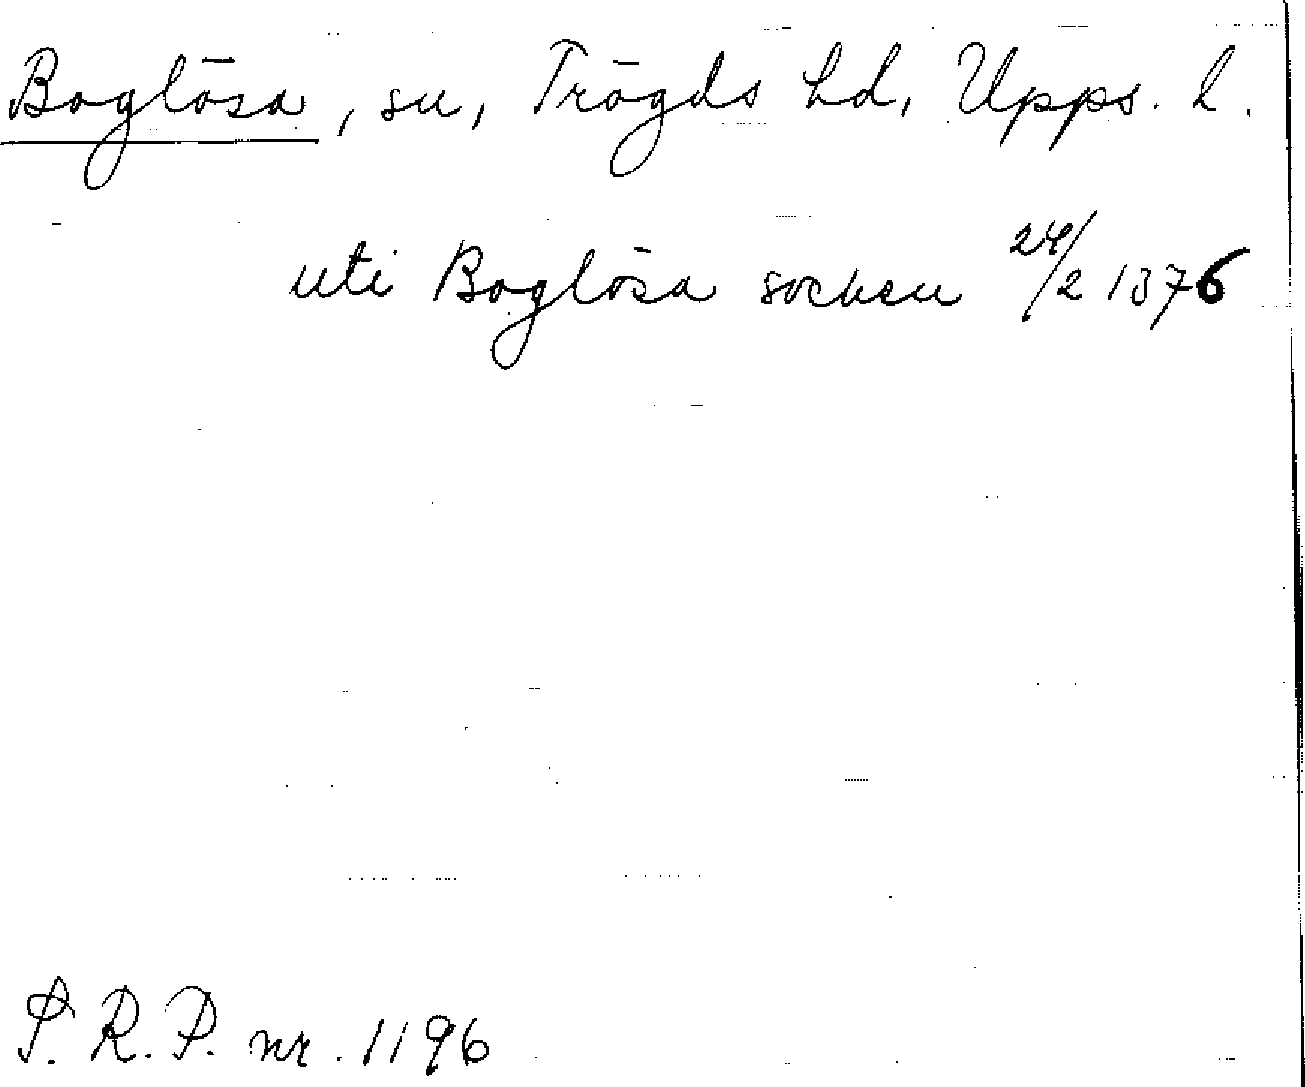 Boglösa, sn, Trögds hd, Upps. l.
uti Boglösa socken 24/2 1376
S. R. P. nr. 1196